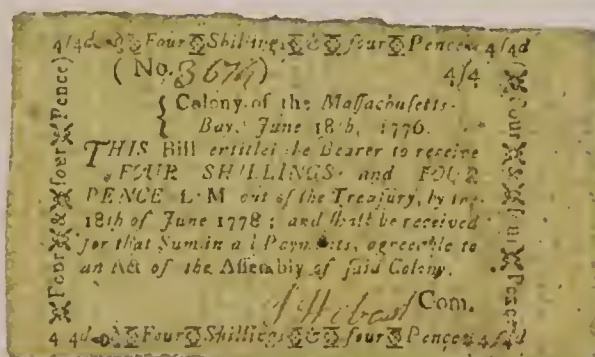 4/4d Four Shillings & four Pence 4/4d
(No. 3674) 4/4
Colony of the Maſſachuſetts-
Bay, June 18th, 1776.
THIS Bill entitles the Bearer to receive
FOUR SHILLINGS and FOUR
PENCE L. M out of the Treaſury, by the
18th of June 1778; and ſhall be received
for that Sum in all Payments, agreeable to
an Act of the Aſſembly of ſaid Colony.
Com.
4 4d Four Shillings & four Pence 4/4d
Four & four Pence)
Four & four Pence